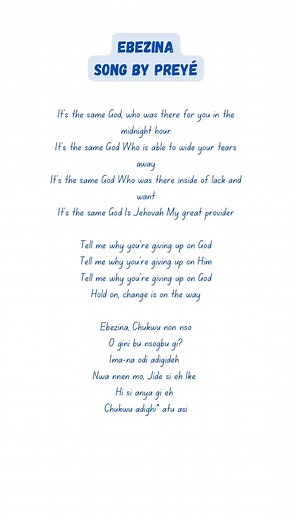 EBEZINA
SONG BY PREYÉ
It's the same God, who was there for you in the
midnight hour
It's the same God Who is able to wide your tears
away
It's the same God Who was there inside of lack and
want
It's the same God Is Jehovah My great provider
Tell me why you're giving up on God
Tell me why you're giving up on Him
Tell me why you're giving up on God
Hold on, change is on the way
Ebezina, Chukwu non nso
O gini bu nsogbu gi?
Ima-na odi adigideh
Nwa nnen mo, Jide si eh Ike
Hi si anya gi eh
Chukwu adighi* atu asi